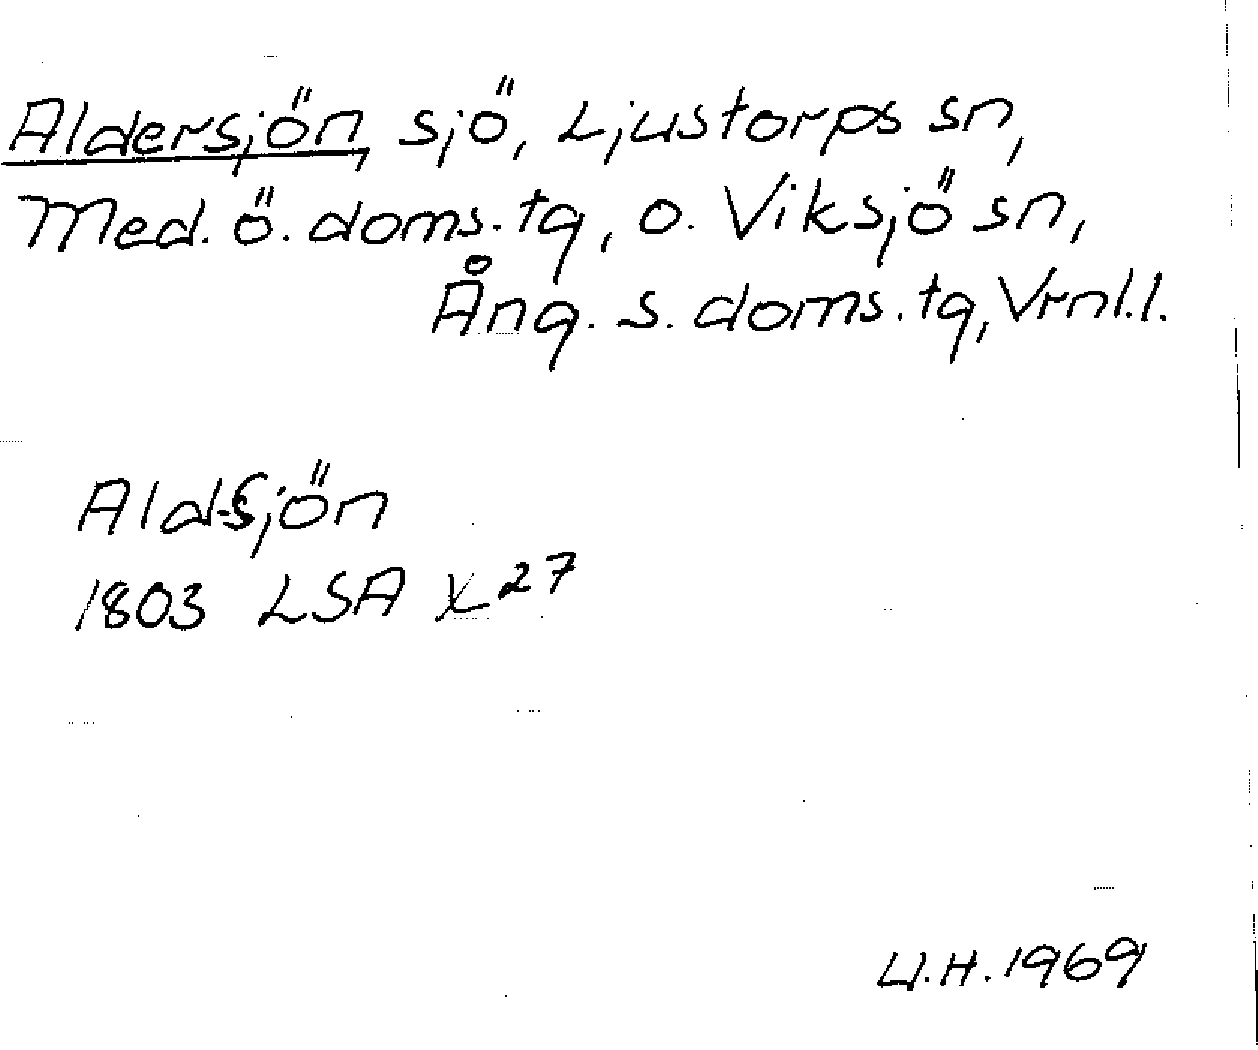 Aldersjön, sjö, Ljustorps sn,
Med. ö. doms. tg, o. Viksjö sn,
Ång. s. doms. tg, Vrnl.l.
Ald-sjön
1803 LSA X 27
U.H. 1969